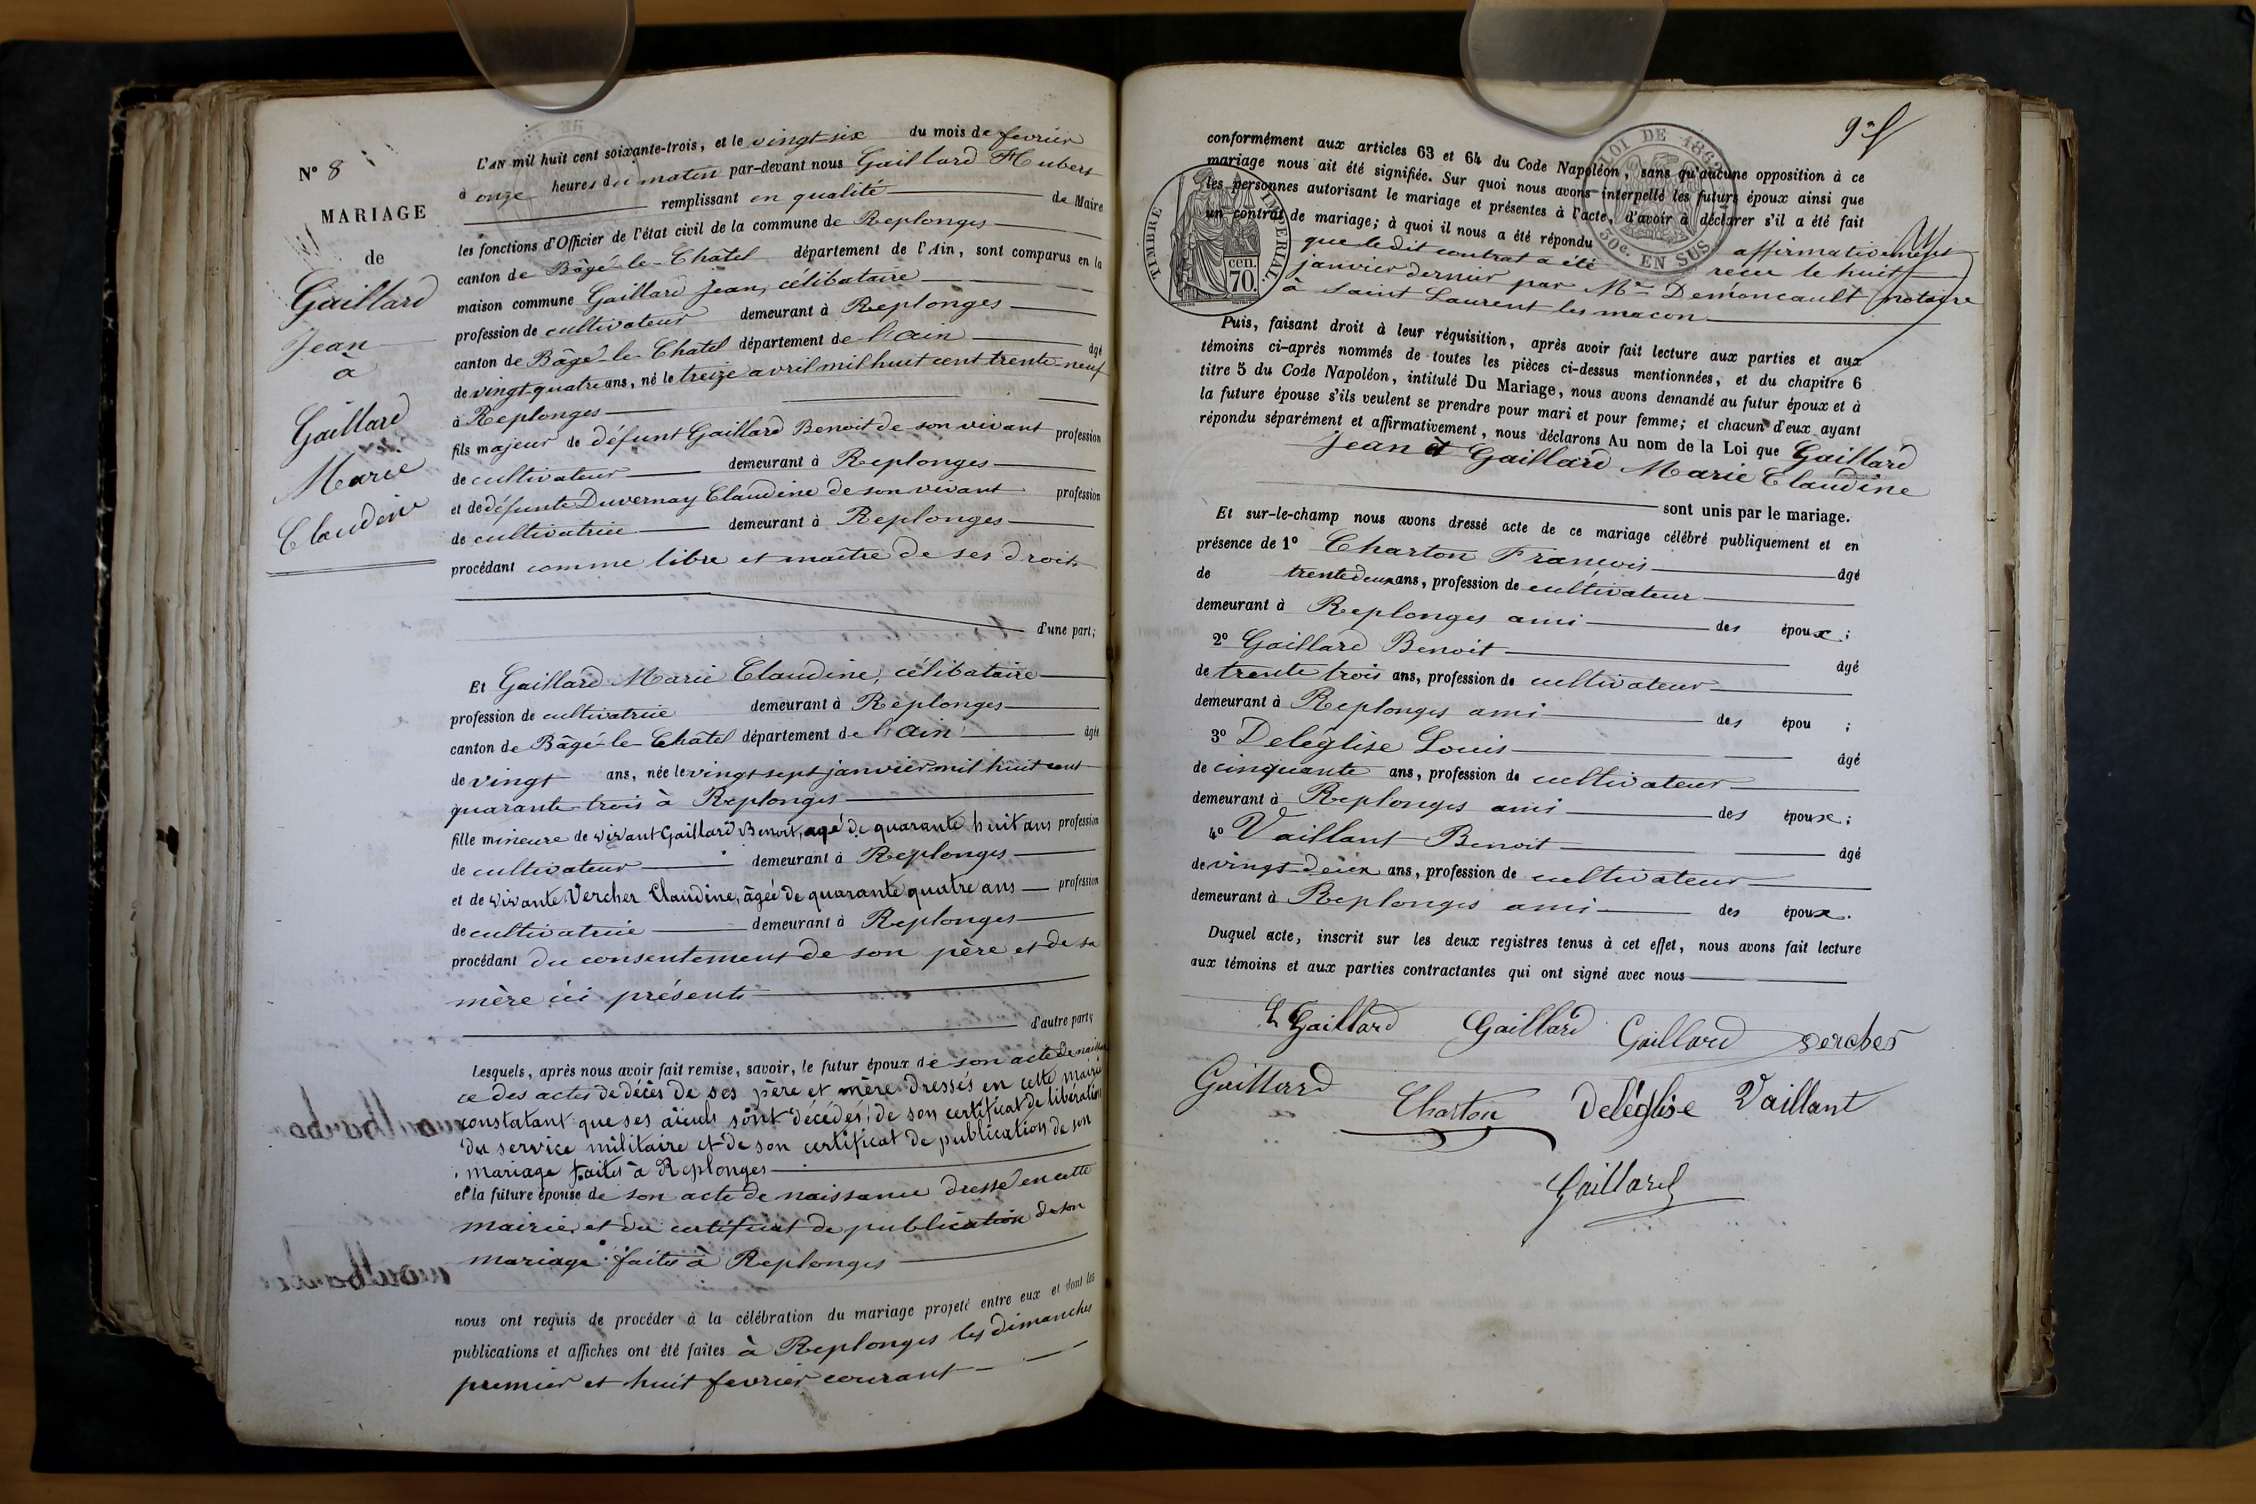 N° 8
MARIAGE
de
Gaillard
Jean
à
Gaillard
Marie
Claudine
L'AN mil huit cent soixante-trois, et le vingt-six du mois de fevrier
à onze heures du matin par-devant nous Gaillard Hubert
remplissant en qualité de Maire
les fonctions d'Officier de l'état civil de la commune de Replonges
canton de Bâgé-le-Châtel département de l'Ain, sont comparus en la
maison commune Gaillard Jean, célibataire
profession de cultivateur demeurant à Replonges
canton de Bâgé-le-Chatel département de l'ain âgé
de vingt-quatre ans, né le treize avril mil huit cent trente-neuf
à Replonges
fils majeur de défunt Gaillard Benoit de son vivant profession
de cultivateur demeurant à Replonges
et de défunte Duvernay Claudine de son vivant profession
de cultivatrice demeurant à Replonges
procédant comme libre et maître de ses droits
d'une part;
Et Gaillard Marie Claudine, célibataire
profession de cultivatrice demeurant à Replonges
canton de Bâgé-le-Châtel département de l'ain âgée
de vingt ans, née le vingt sept janvier mil huit cent
quarante-trois à Replonges
fille mineure de vivant Gaillard Benoit, agé de quarante huit ans profession
de cultivateur demeurant à Replonges
et de vivante Vercher Claudine, âgée de quarante quatre ans profession
de cultivatrice demeurant à Replonges
procédant du consentement de son père et de sa
mère ici présents
d'autre part;
Lesquels, après nous avoir fait remise, savoir, le futur époux de son acte de naissan
ce des actes de décès de ses père et mère dressés en cette mairie
constatant que ses aïeuls sont décédés; de son certificat de libération
du service militaire et de son certificat de publication de son
mariage faites à Replonges
et la future épouse de son acte de naissance dressé en cette
mairie et du certificat de publication de son
mariage faites à Replonges
nous ont requis de procéder à la célébration du mariage projeté entre eux et dont les
publications et affiches ont été faites à Replonges les dimanches
premier et huit fevrier courant
conformément aux articles 63 et 64 du Code Napoléon, sans qu'aucune opposition à ce
mariage nous ait été signifiée. Sur quoi nous avons interpellé les futurs époux ainsi que
les personnes autorisant le mariage et présentes à l'acte, d'avoir à déclarer s'il a été fait
un contrat de mariage; à quoi il nous a été répondu affirmativement
que ledit contrat a été recu le huit
janvier dernier par Me Demoncault notaire
à Saint Laurent les macon
TIMBRE IMPERIAL
70 cen.
LOI DE 1862
30c. EN SUS
Puis, faisant droit à leur réquisition, après avoir fait lecture aux parties et aux
témoins ci-après nommés de toutes les pièces ci-dessus mentionnées, et du chapitre 6
titre 5 du Code Napoléon, intitulé Du Mariage, nous avons demandé au futur époux et à
la future épouse s'ils veulent se prendre pour mari et pour femme; et chacun d'eux ayant
répondu séparément et affirmativement, nous déclarons Au nom de la Loi que Gaillard
Jean et Gaillard Marie Claudine
sont unis par le mariage.
Et sur-le-champ nous avons dressé acte de ce mariage célébré publiquement et en
présence de 1° Charton Francois âgé
de trente deux ans, profession de cultivateur
demeurant à Replonges ami des époux;
2° Gaillard Benoit âgé
de trente trois ans, profession de cultivateur
demeurant à Replonges ami des épou ;
3° Deléglise Louis âgé
de cinquante ans, profession de cultivateur
demeurant à Replonges ami des époux;
4° Vaillant Benoit âgé
de vingt-deux ans, profession de cultivateur
demeurant à Replonges ami des époux.
Duquel acte, inscrit sur les deux registres tenus à cet effet, nous avons fait lecture
aux témoins et aux parties contractantes qui ont signé avec nous
Gaillard Gaillard Gaillard vercher
Gaillard Charton Deléglise Vaillant
Gaillard